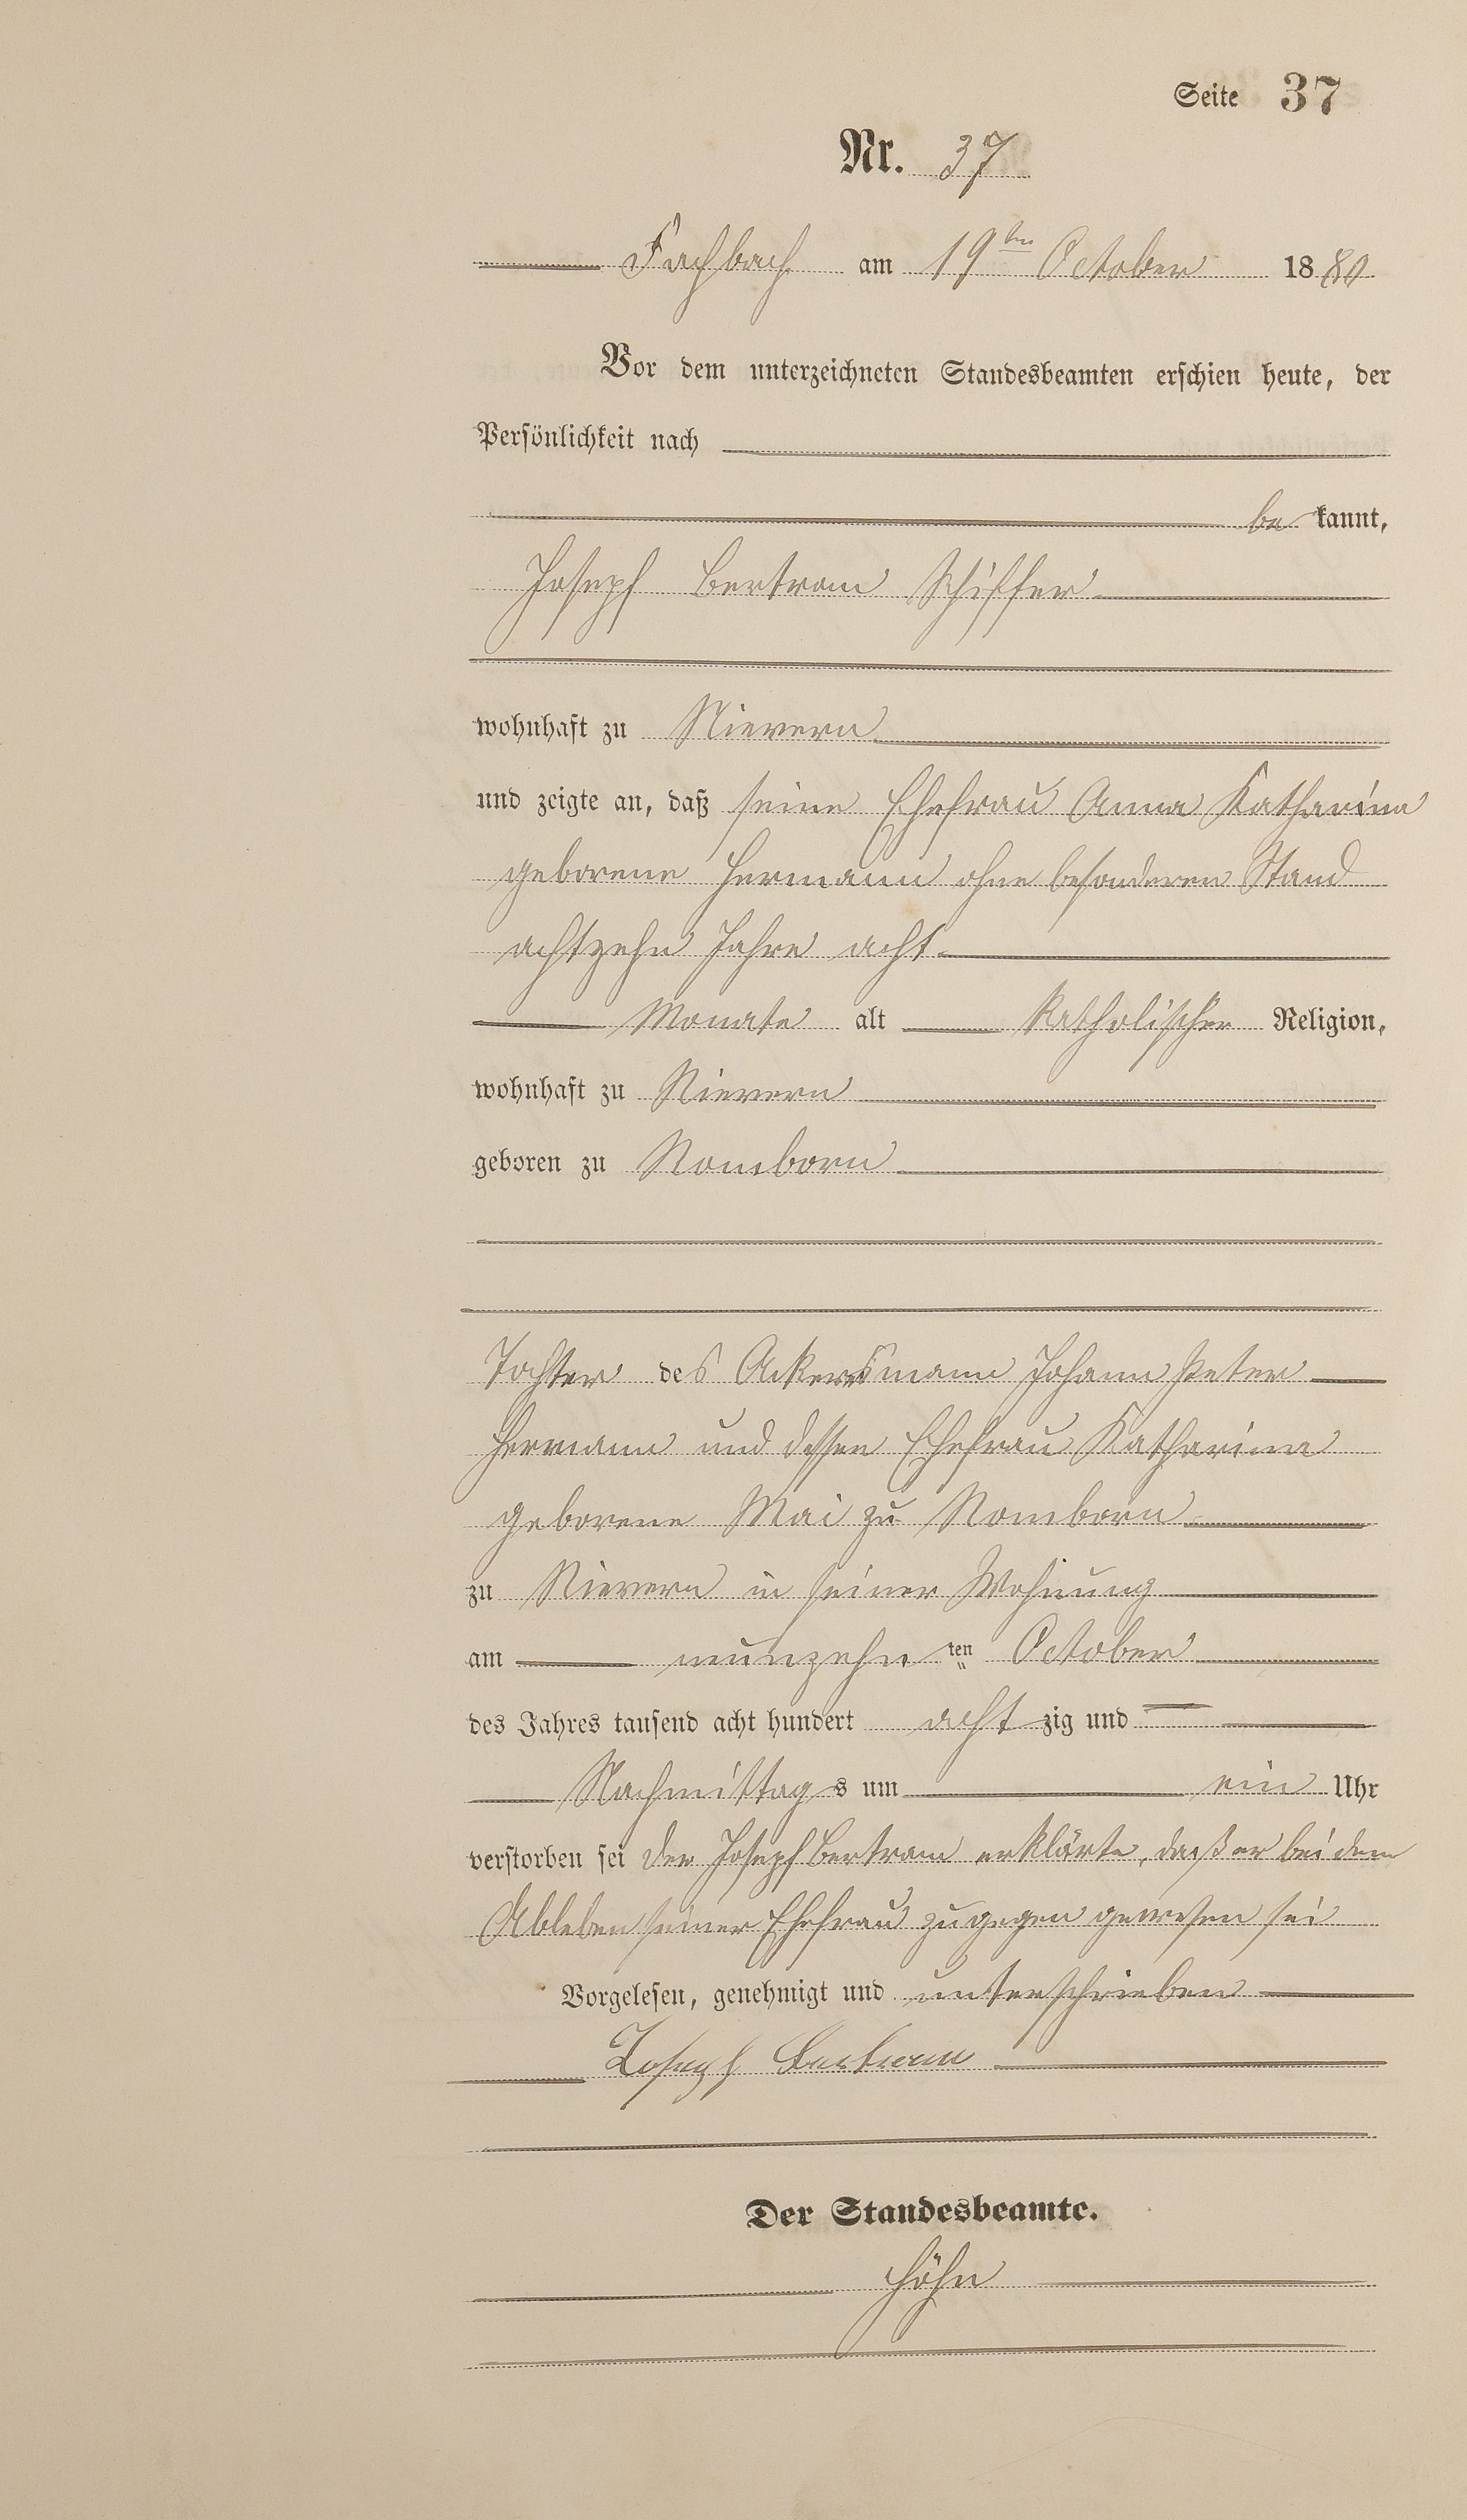 Seite 37
Nr. 37
Fachbach am 19ten October 1880
Vor dem unterzeichneten Standesbeamten erschien heute, der
Persönlichkeit nach
be kannt,
Joseph Bertram Schiffer
wohnhaft zu Nievern
und zeigte an, daß seine Ehefrau Anna Katharina
geborene Hermann ohne besonderen Stand
achtzehn Jahre acht
Monate alt katholischer Religion,
wohnhaft zu Nievern
geboren zu Nomborn
Tochter des Ackersmann Johann Peter
Hermann und dessen Ehefrau Katharina
geborene Mai zu Nomborn
zu Nievern in seiner Wohnung
am neunzehn ten October
des Jahres tausend acht hundert acht zig und
Nachmittag s um ein Uhr
verstorben sei Der Joseph Bertram erklärte, daß er bei dem
Ableben seiner Ehefrau zugegen gewesen sei
Vorgelesen, genehmigt und unterschrieben
Joseph Bertram
Der Standesbeamte.
Höhn